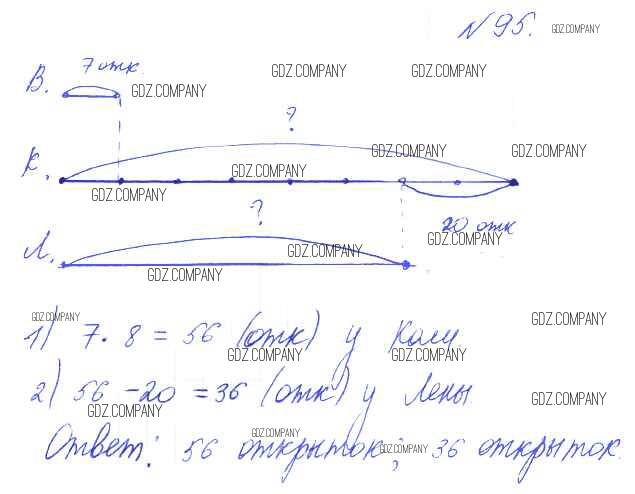 № 95.
GDZ.COMPANY
7 отк.
GDZ.COMPANY GDZ.COMPANY
В.
GDZ.COMPANY
?
GDZ.COMPANY GDZ.COMPANY
К.
GDZ.COMPANY
GDZ.COMPANY
?
20 отк
GDZ.COMPANY
Л.
GDZ.COMPANY
GDZ.COMPANY
GDZ.COMPANY GDZ.COMPANY
1) 7 · 8 = 56 (отк) у Коли
GDZ.COMPANY GDZ.COMPANY
2) 56 - 20 = 36 (отк) у Лены.
GDZ.COMPANY GDZ.COMPANY
GDZ.COMPANY
Ответ: 56 открыток; 36 открыток.
GDZ.COMPANY